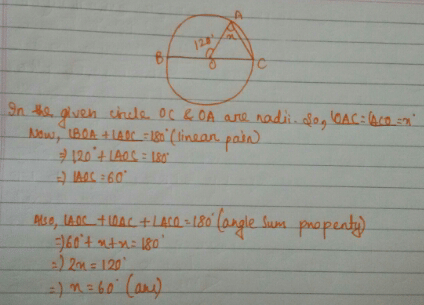 A
120°
x
B
O
C
In the given circle OC & OA are radii. So, ∠OAC = ∠ACO = x°
Now, ∠BOA + ∠AOC = 180° (linear pair)
⇒ 120° + ∠AOC = 180°
⇒ ∠AOC = 60°
Also, ∠AOC + ∠OAC + ∠ACO = 180° (angle sum property)
⇒ 60° + x + x = 180°
⇒ 2x = 120°
⇒ x = 60° (ans)